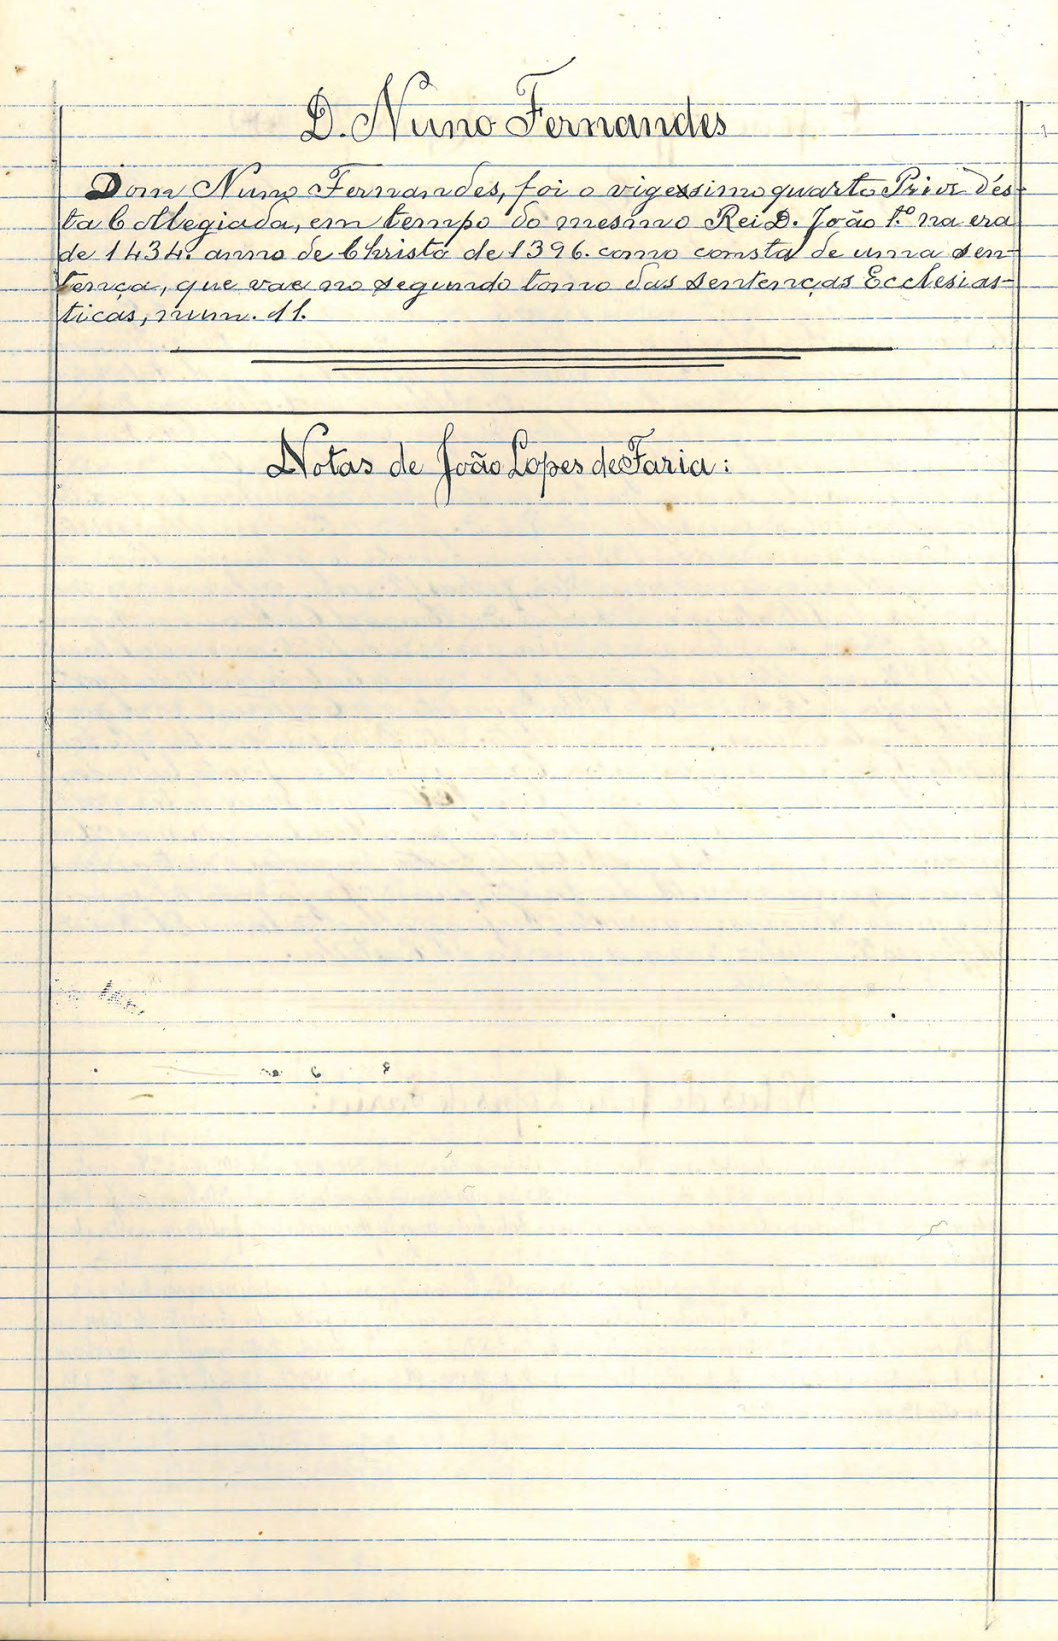 D. Nuno Fernandes
Dom Nuno Fernandes, foi o vigexsimo quarto Prior des-
ta Collegiada, em tempo do mesmo Rei D. João 1.º na era
de 1434. anno de Christo de 1396. como consta de uma sen-
tença, que vae no segundo tomo das sentenças Ecclesias-
ticas, num. 11.
Notas de João Lopes de Faria: